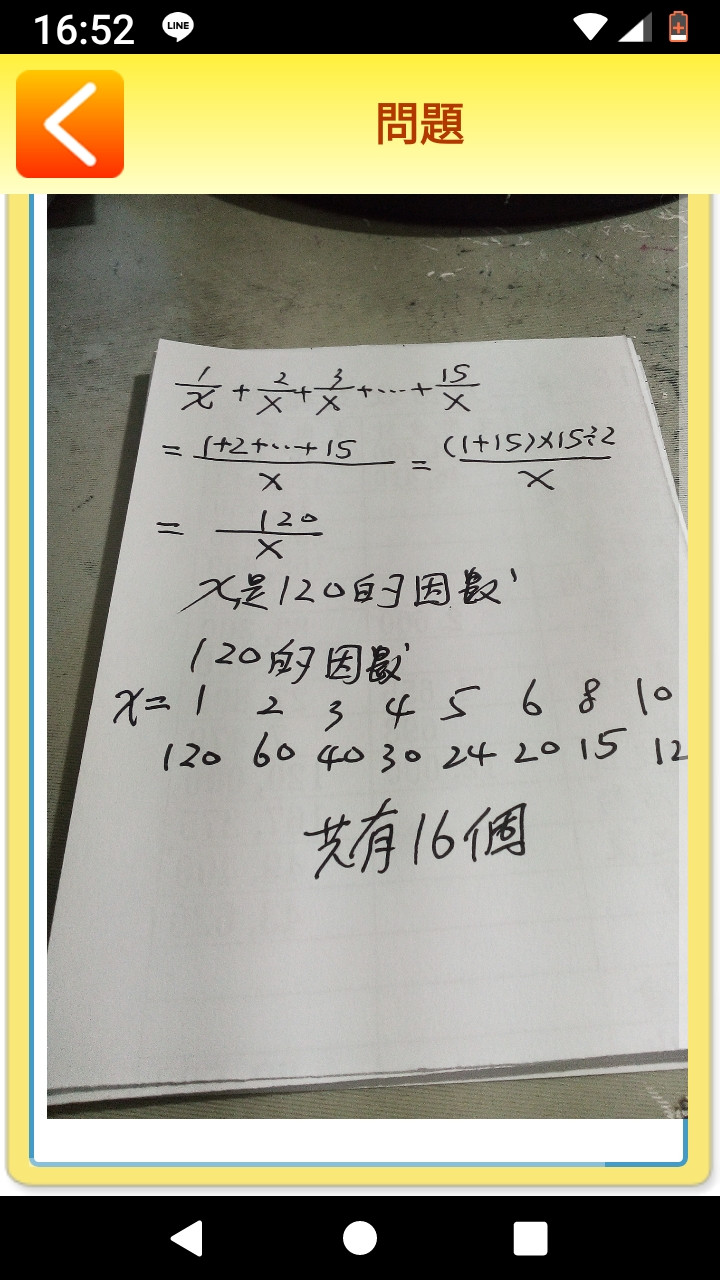 16:52 LINE
問題
1/x + 2/x + 3/x + ... + 15/x
= (1+2+...+15)/x = ((1+15)×15÷2)/x
= 120/x
x是120的因數
120的因數
x= 1 2 3 4 5 6 8 10
120 60 40 30 24 20 15 12
共有16個